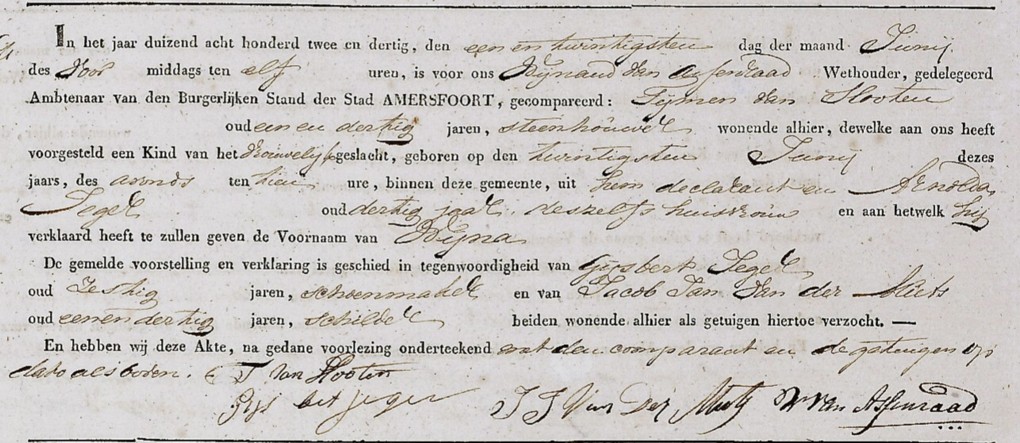 In het jaar duizend acht honderd twee en dertig, den een en twintigsten dag der maand Junij
des Voor middags ten elf uren, is voor ons Wijnand van Assenraad Wethouder, gedelegeerd
Ambtenaar van den Burgerlijken Stand der Stad AMERSFOORT, gecompareerd: Tijmen van Slooten
oud een en dertig jaren, steenhouwer wonende alhier, dewelke aan ons heeft
voorgesteld een Kind van het Vrouwelijk geslacht, geboren op den twintigsten Junij dezes
jaars, des avonds ten tien ure, binnen deze gemeente, uit hem declarant en Arnolda
Jeger oud dertig jaar, deszelfs huisvrouw en aan hetwelk hij
verklaard heeft te zullen geven de Voornaam van Wijna
De gemelde voorstelling en verklaring is geschied in tegenwoordigheid van Gijsbert Jeger
oud zestig jaren, schoenmaker en van Jacob Jan van der Miets
oud een en dertig jaren, schilder beiden wonende alhier als getuigen hiertoe verzocht. —
En hebben wij deze Akte, na gedane voorlezing onderteekend met den comparant en de getuigen op
dato als boven. T van Slooten
Gijs bet jeger J J Van Der Mets W van Assenraad